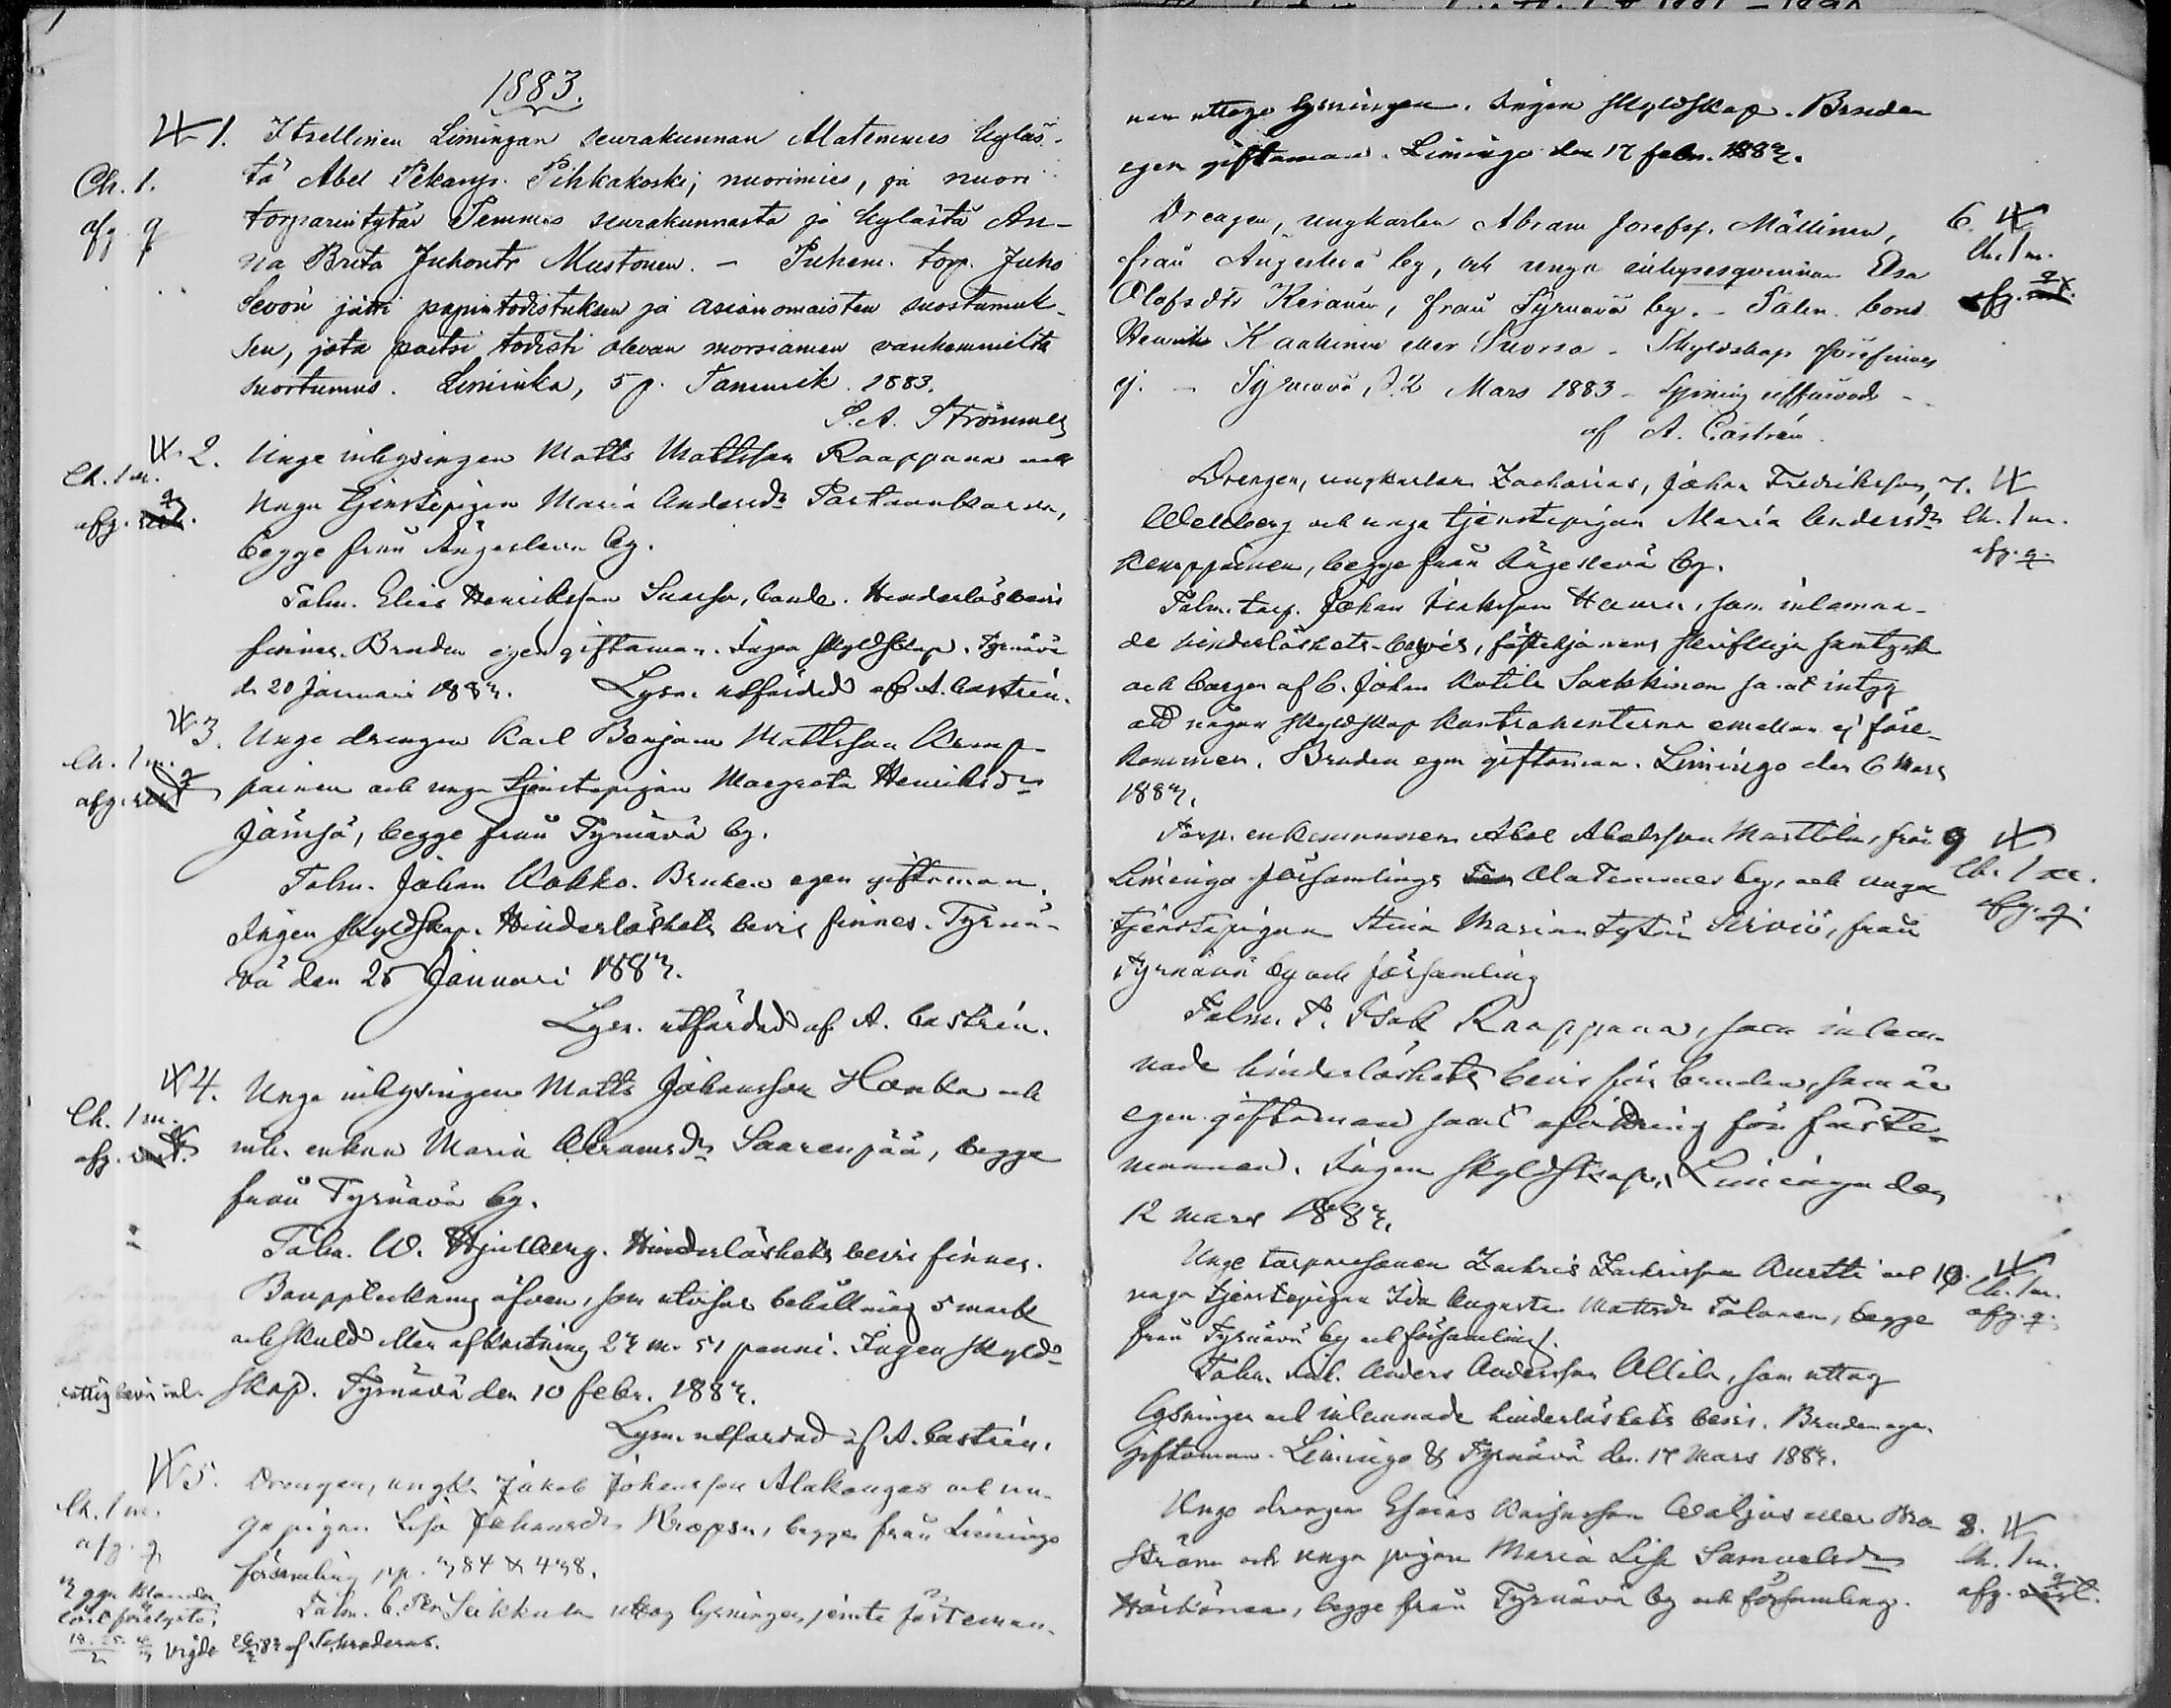 1883.
1. Itsellinen Limingan seurakunnan Alatemmes kyläs-
Ch. 1. tä Abel Pekanp. Pihkakoski, nuorimies, ja nuori
afg. q torparintytär Temmes seurakunnasta ja kylästä An-
na Brita Juhontr Mustonen. — Puhem. torp. Juho
Sevón jätti papintodistuksen ja asianomaisten suostumuk-
sen, jota paetsi todisti olevan morsiamen vanhemmilta
suostumus. Liminka, 5 p. Tammik. 1883.
P. A. Strömmer
2. Unge inhysingen Matts Mattsson Raappana och
Ch. 1 m. unga tjenstepigan Maria Andersdr Partaankarva,
afg. q begge från Ängeslevä by.
Talm. Elias Henriksson Suorsa, bonde. Hinderlös bevis
finnes. Bruden egen giftoman. Ingen skyldskap. Tyrnävä
d. 20 Januari 1883. Lysn. utfärdad af A. Castrén.
3. Unge drengen Karl Benjam Mattsson Kemp-
Ch. 1 m. painen och unga tjenstepigan Margreta Henriksdr
afg. q Jämsä, begge från Tyrnävä by.
Talm. Johan Kokko. Bruden egen giftoman.
Ingen skyldskap. Hinderlöshets bevis finnes. Tyrnä-
vä den 25 Januari 1883.
Lysn. utfärdad af A. Castrén.
4. Unge inhysingen Matts Johansson Honka och
Ch. 1 m. inh. enkan Maria Abramsdr Saarenpää, begge
afg. från Tyrnävä by.
Talm. W. Hjulberg. Hinderlöshets bevis finnes.
Bouppteckning äfven, som utvisar behållning 5 mark
och skuld eller afkortning 23 m. 51 penni. Ingen skyld-
skap. Tyrnävä den 10 febr. 1883.
Lysn. utfärdad af A. Castrén.
5. Drengen, ungk. Jakob Johansson Alakangas och un-
Ch. 1 m. ga pigan Lisa Johansdr Kropsu, begge från Limingo
afg. q församling pp. 384 & 438.
Talm. b. Per Seikkula uttog lysningen jemte fästeman-
vigde af Schroderus.
nen uttog lysningen. Ingen skyldskap. Bruden
egen giftoman. Limingo den 17 febr. 1883.
Drengen, ungkarlen Abram Josefsp. Mällinen, 6.
från Ängeslevä by, och unga inhysesqvinnan Elsa Ch. 1 m.
Olofsdtr Keränen, från Tyrnävä by. — Talm. bond. afg. q
Henrik Kaakinen eller Suorsa. Skyldskap förefinnes
ej. — Tyrnävä, d. 2 Mars 1883 — Lysning utfärdad
af A. Castrén.
Drengen, ungkarlen Zacharias, Johan Fredriksson, 7.
Wellberg och unga tjenstepigan Maria Andersdr Ch. 1 m.
Kemppainen, begge från Ängeslevä by. afg. q.
Talm. torp. Johan Hannu, som inlemna-
de hinderlöshets-bevis, fästehjonens skriftliga samtycke
och borgen af b. Johan Kotila Sarkkinen samt intyg
att någon skyldskap kontrahenterna emellan ej före-
kommer. Bruden egen giftoman. Limingo den 6 Mars
1883.
Torp. enkemannen Abel Abelsson Marttila, från 9
Limingo församlings Ala Temmes by, och unga Ch. 1 m.
tjenstepigan Stina Mariantytär Sirviö, från afg. q.
Tyrnävä by och församling
Talm. T. Isak Raappana, som inlem-
nade hinderlöshets bevis för bruden, som är
egen giftoman samt afvittring för fäste-
mannen. Ingen skyldskap. Limingo den
12 mars 1883.
Unge torparesonen Zachris Zachrisson Kurtti och 10.
unga tjenstepigan Ida Augusta Mattsdr Tolonen, begge Ch. 1 m.
från Tyrnävä by och församling. afg. q.
Talm. inh. Anders Andersson Ollila, som uttog
lysningen och inlemnade hinderlöshets bevis. Bruden egen
giftoman. Limingo & Tyrnävä den 17 Mars 1883.
Unge drengen Esaias Kaisasson Valjus eller Bro- 8.
ström och unga pigan Maria Lisa Samuelsdr Ch. 1 m.
Härkönen, begge från Tyrnävä by och församling. afg. q